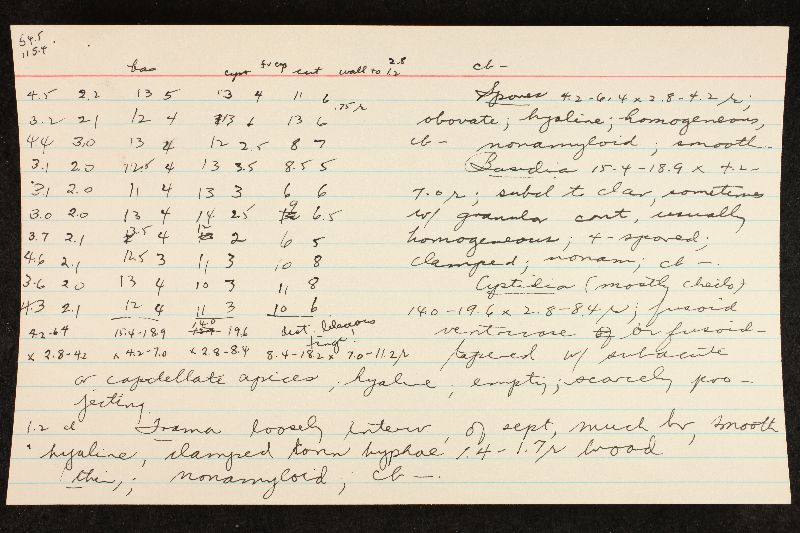 54.5
115.4
bas cyst fv cap cut wall to 2.8 12 cb -
4.5 2.2 13 5 13 4 11 6 .75 r Spores 4.2-6.4 x 2.8-4.2 r;
3.2 2.1 12 4 13 6 13 6 obovate; hyaline; homogeneous,
4.4 3.0 13 4 12 2.5 8 7 cb - nonamyloid; smooth.
3.1 2.0 12.5 4 13 3.5 8.5 5 Basidia 15.4-18.9 x 4.2-
3.1 2.0 11 4 13 3 6 6 7.0 r; subcl to clav, sometimes
3.0 2.0 13 4 14 2.5 9 6.5 w/ granular cont, usually
3.7 2.1 3.5 4 12 2 6 5 homogeneous; 4-spored;
4.6 2.1 12.5 3 11 3 10 8 clamped; nonam; cb -.
3.6 2.0 13 4 10 3 11 8 Cystidia (mostly cheilo)
4.3 2.1 12 4 11 3 10 6 14.0-19.6 x 2.8-8.4 r; fusoid
4.2-6.4 15.4-18.9 14.0 19.6 ventricose or fusoid-
x 2.8-4.2 x 4.2-7.0 x 2.8-8.4 8.4-18.2 x 7.0-11.2 r tapered w/ subacute
or capitellate apices, hyaline, empty; scarcely pro-
jecting.
1.2 d Trama loosely interw, of sept, much br, smooth
hyaline, clamped conn hyphae 1.4-1.7 r broad
thin,; nonamyloid; cb -.